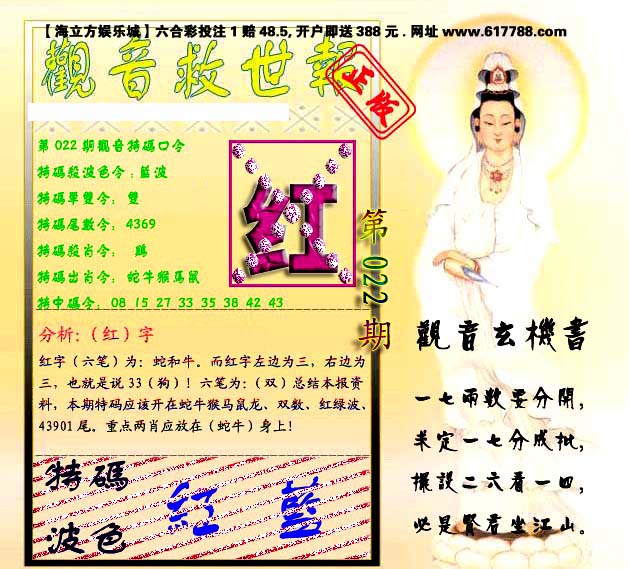 【海立方娱乐城】六合彩投注1赔48.5,开户即送388元.网址www.617788.com
觀音救世報
正版
第022期觀音特碼口令
特碼殺波色令:藍波
特碼單雙令: 雙
特碼尾數令: 4369
特碼殺肖令: 鷄
特碼出肖令: 蛇牛猴馬鼠
特中碼令: 08 15 27 33 35 38 42 43
红
第022期
分析:(红)字
红字(六笔)为:蛇和牛。而红字左边为三,右边为
三,也就是说33(狗)!六笔为:(双)总结本报资
料,本期特码应该开在蛇牛猴马鼠龙、双数、红绿波、
43901尾。重点两肖应放在(蛇牛)身上!
特碼
波色
紅 藍
觀音玄機書
一七兩數要分開,
求定一七分成批,
擺設二六看一四,
必是賢君坐江山。